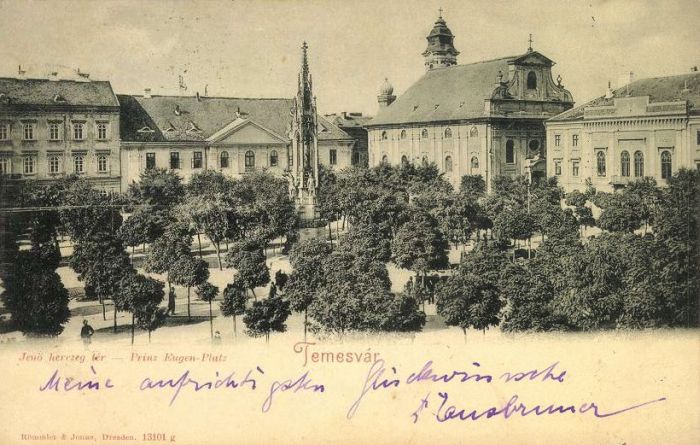 Jenő herczeg tér — Prinz Eugen-Platz
Temesvár
Meine aufrichtigsten Glückwünsche
Römmler & Jonas, Dresden. 13101 g